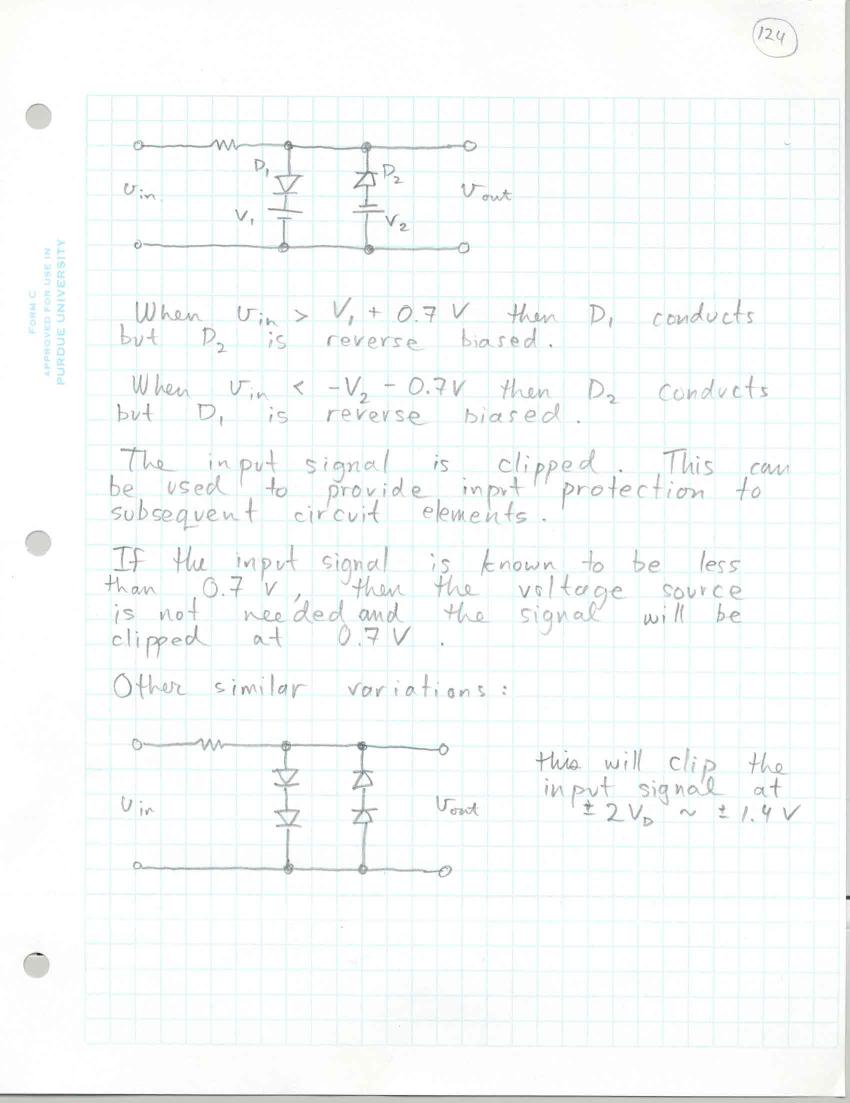 124
FORM C
APPROVED FOR USE IN
PURDUE UNIVERSITY
D₁ D₂
υin υout
V₁ V₂
When υin > V₁ + 0.7 V then D₁ conducts
but D₂ is reverse biased.
When υin < -V₂ - 0.7V then D₂ conducts
but D₁ is reverse biased.
The input signal is clipped. This can
be used to provide input protection to
subsequent circuit elements.
If the input signal is known to be less
than 0.7 V, then the voltage source
is not needed and the signal will be
clipped at 0.7 V.
Other similar variations:
this will clip the
input signal at
± 2V_D ~ ± 1.4 V
υin υout